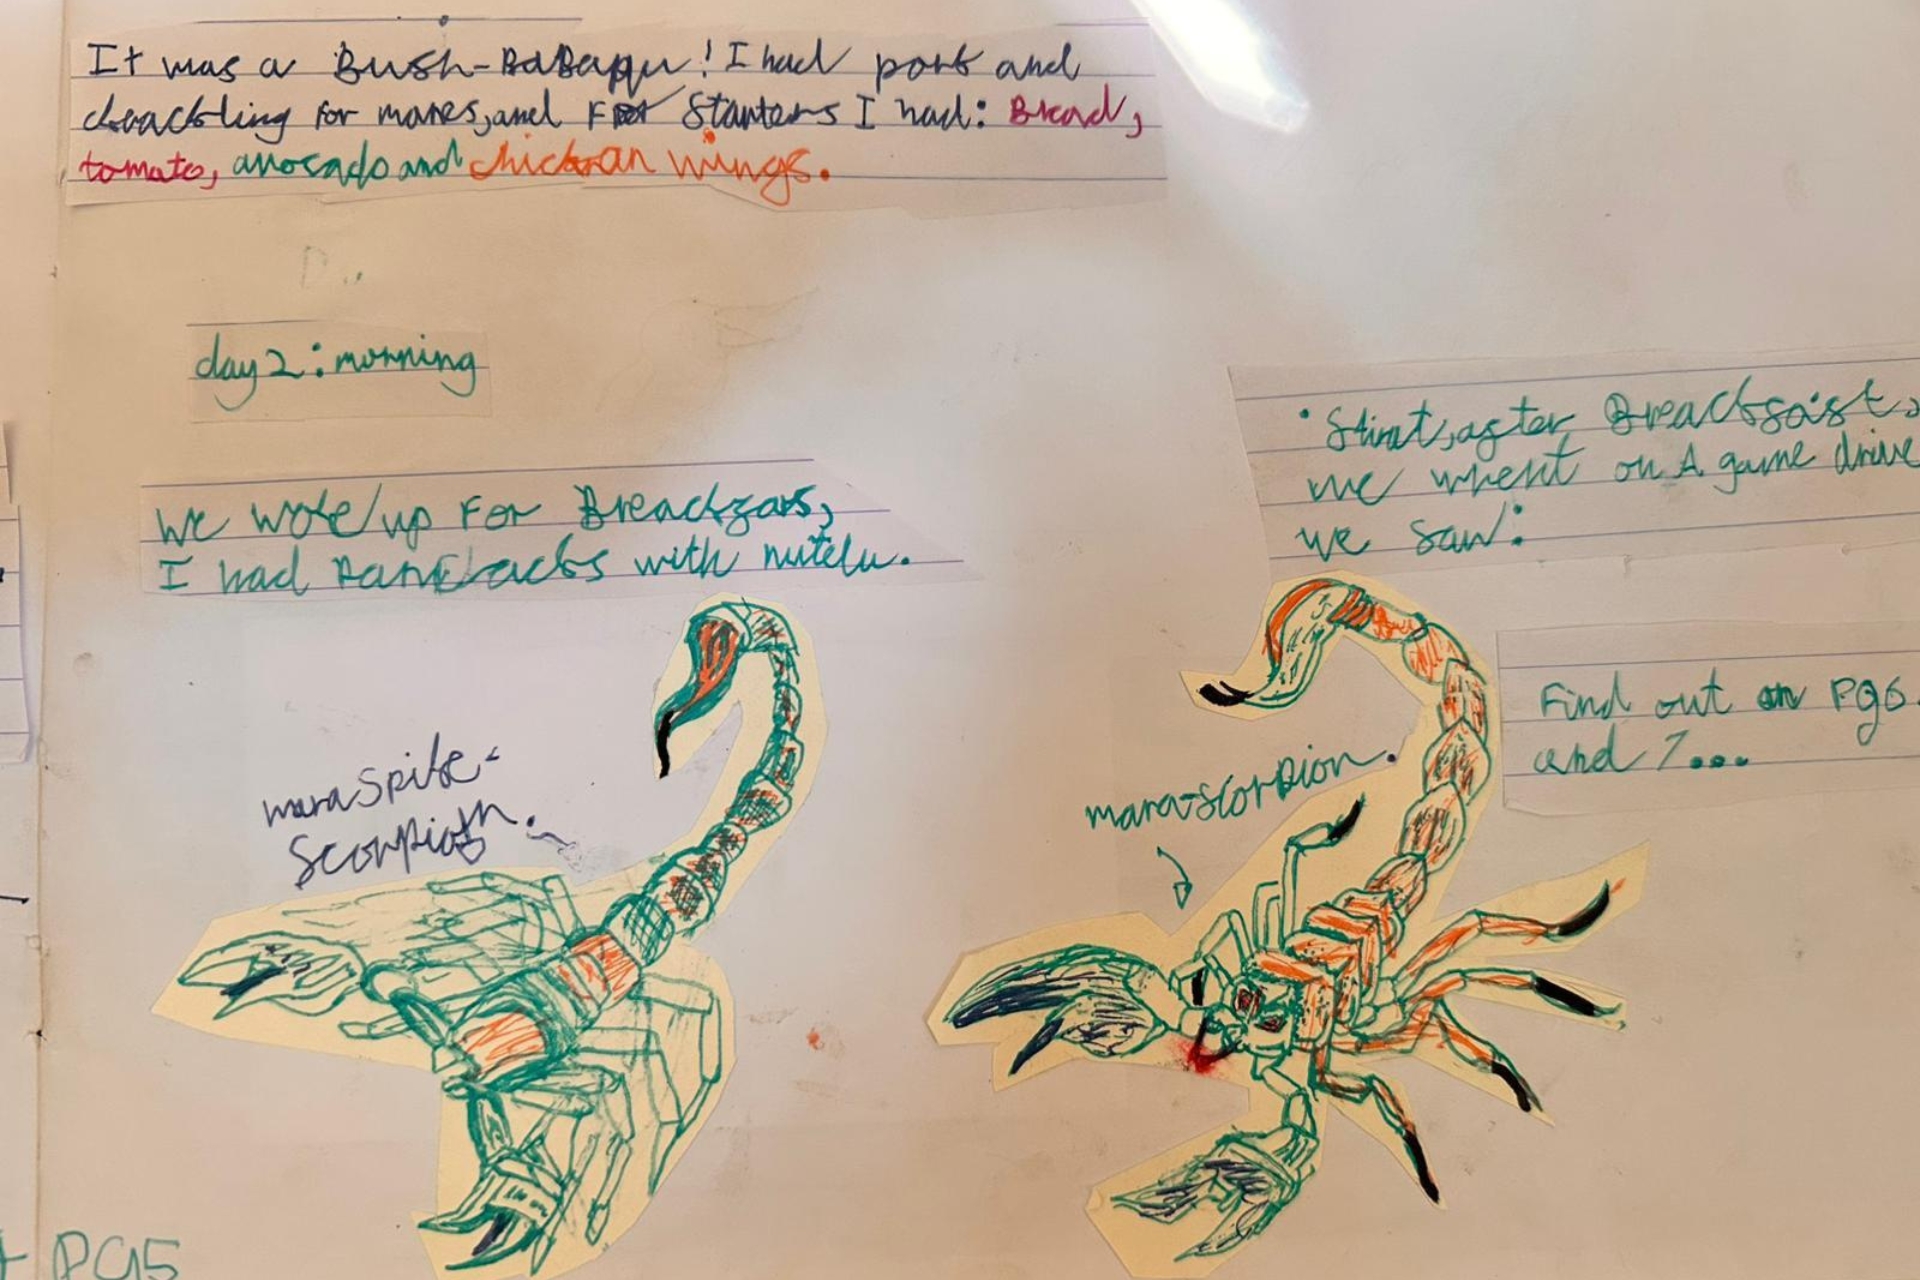 It was a Bush-BaBaqu! I had pork and
chrackling for manes, and For Starters I had: Bread,
tomato, avocado and chickan wings.
day 2: morning
We woke up For Breackfars,
I had Pancacks with nutela.
• Stirat, after Breackfast,
we whent on A game drive
we saw:
Find out on PG6.
and 7...
mara spike-
Scorpion.
mara-scorpion.
PG5